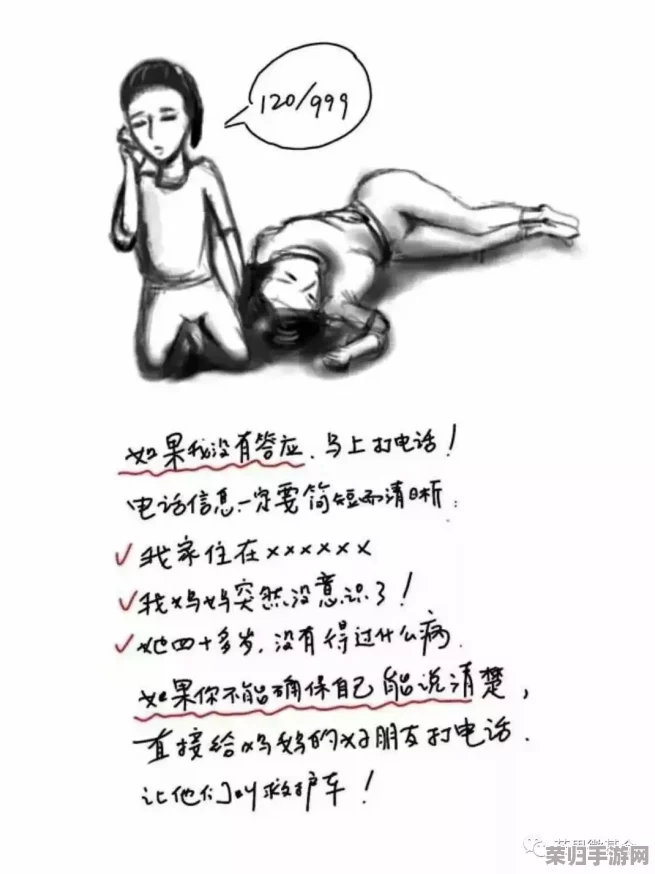 120/999
如果我没有答应、马上打电话！
电话信息一定要简短而清晰：
✓我家住在××××××
✓我妈妈突然没意识了！
✓她四十多岁，没有得过什么病.
如果你不能确保自己能说清楚，
直接给妈妈的好朋友打电话.
让他们叫救护车！
荣归手游网